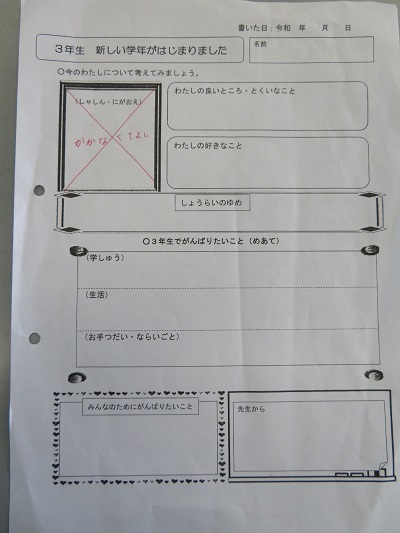 書いた日：令和　年　　月　　日
3年生　新しい学年がはじまりました
名前
〇今のわたしについて考えてみましょう。
(しゃしん・にがおえ)
かかなくてよい
わたしの良いところ・とくいなこと
わたしの好きなこと
しょうらいのゆめ
〇3年生でがんばりたいこと（めあて）
(学しゅう)
(生活)
(お手つだい・ならいごと)
みんなのためにがんばりたいこと
先生から